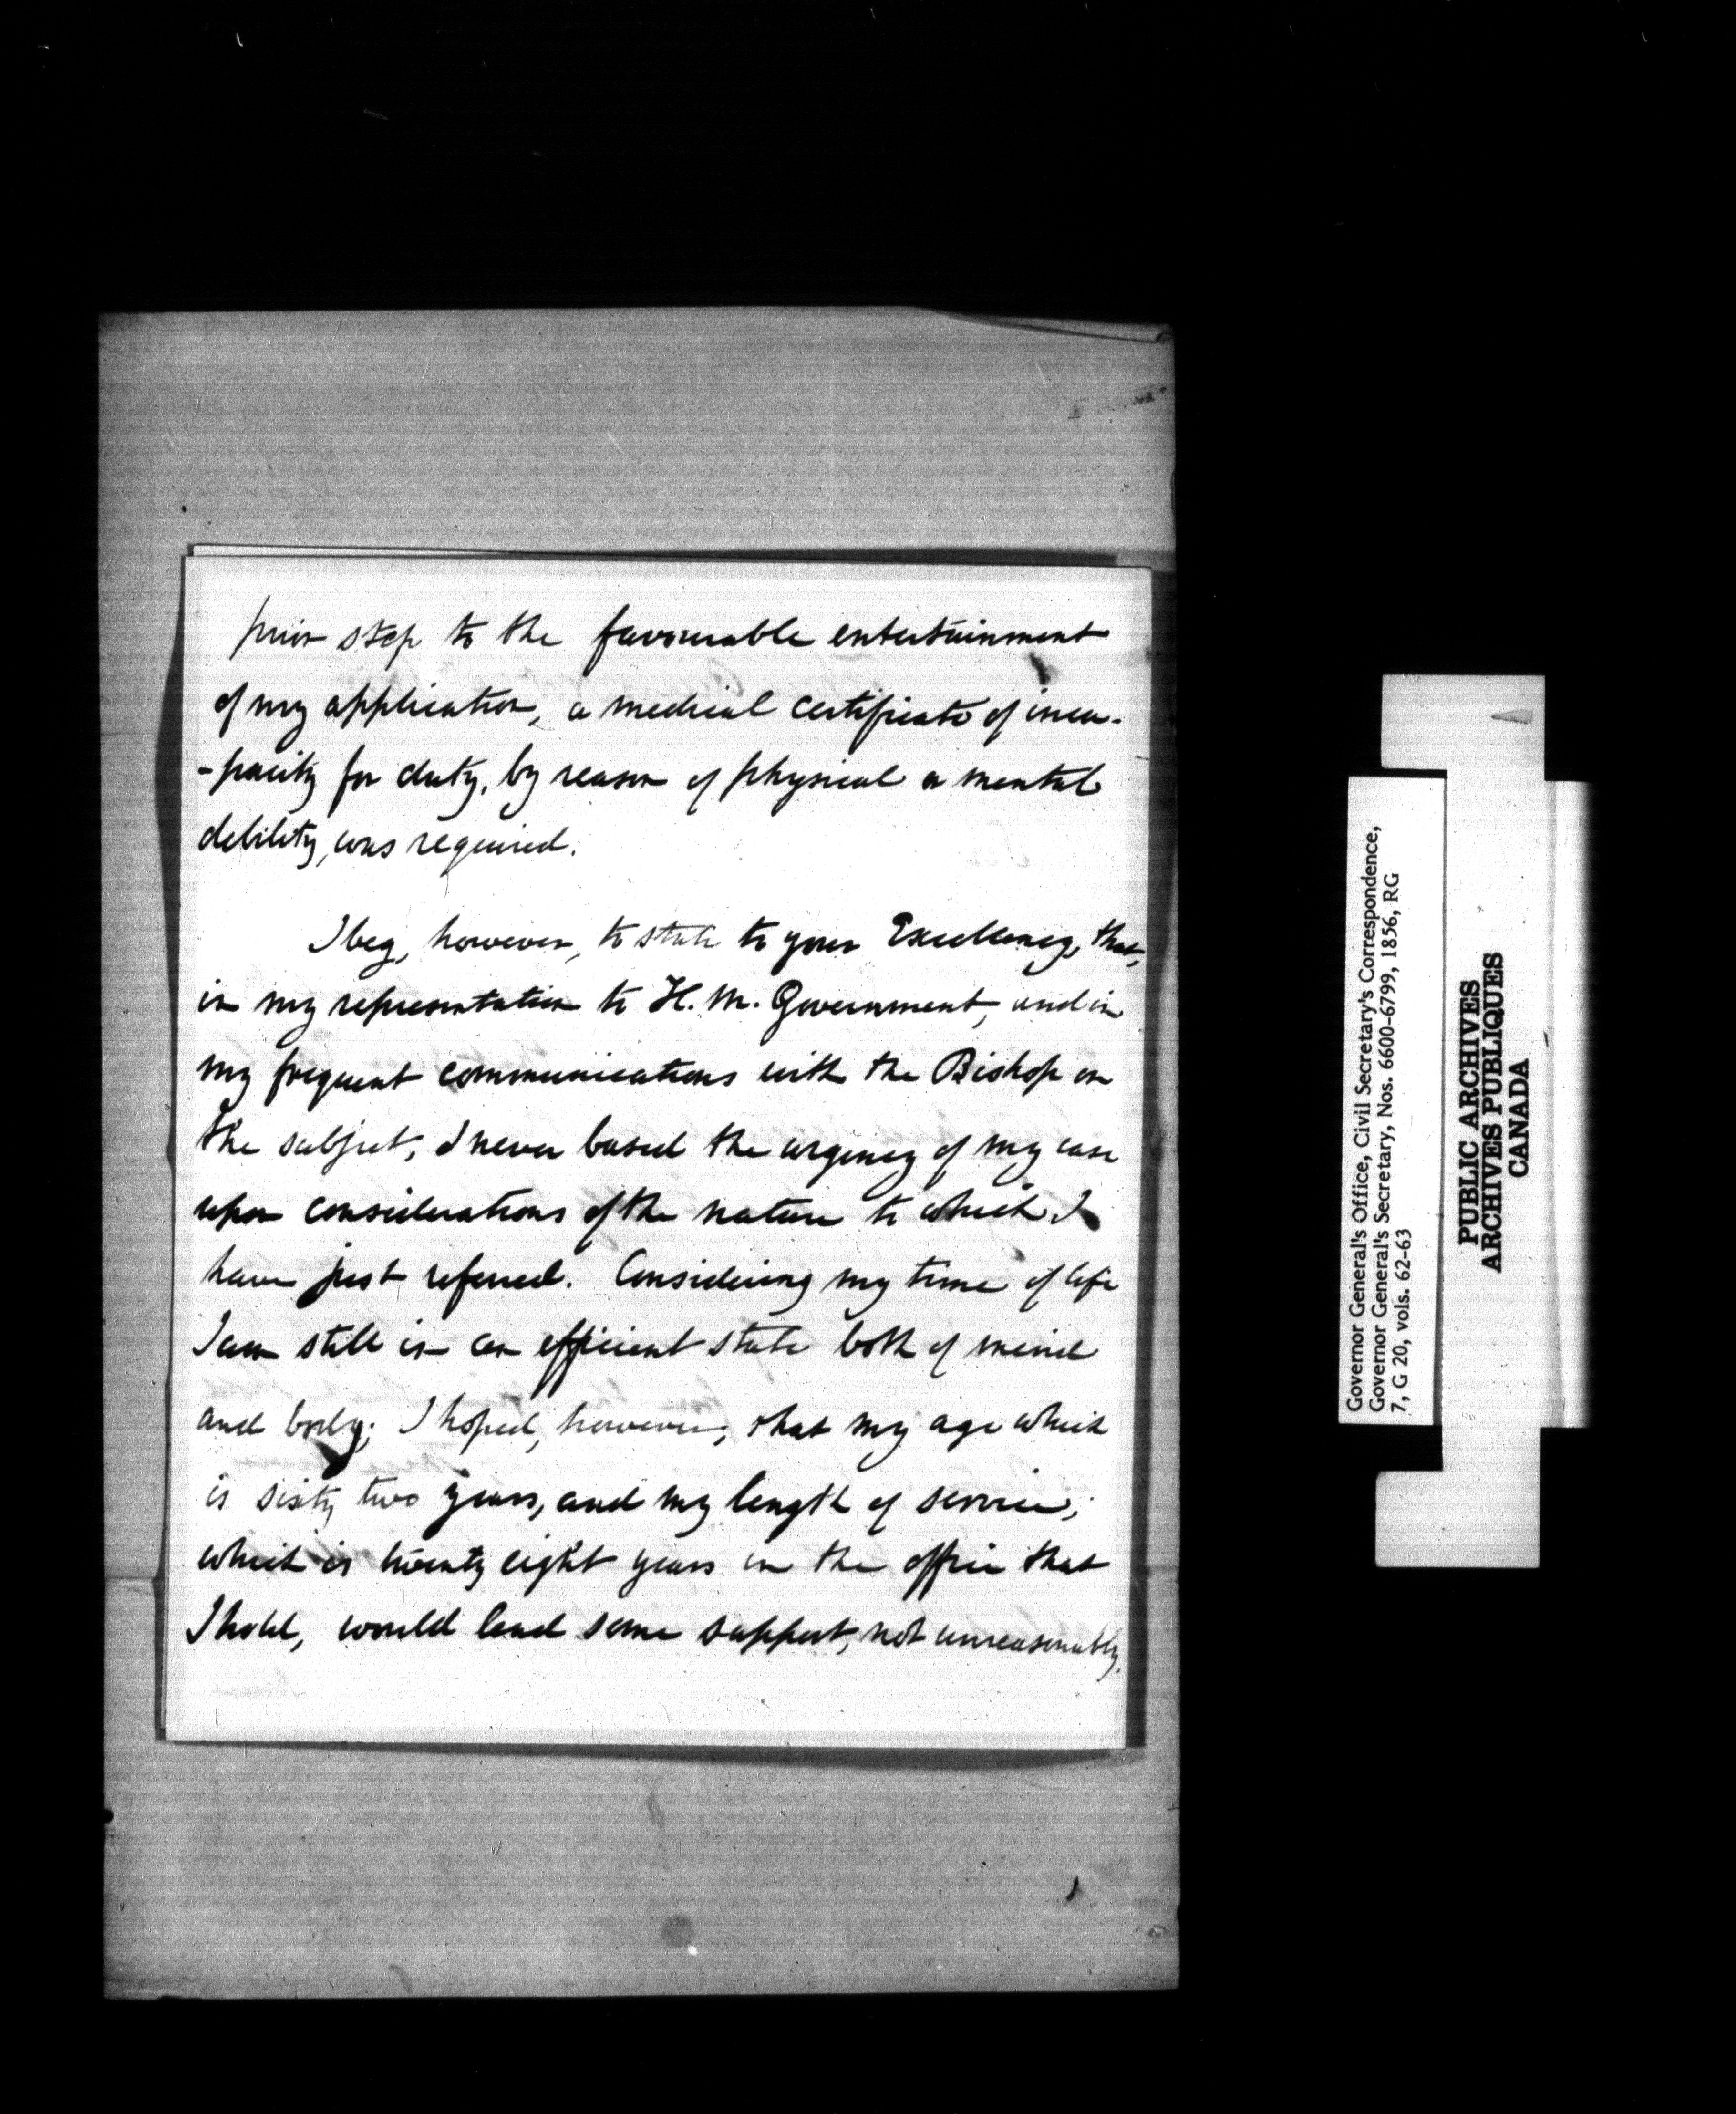 prior step to the favourable entertainment
of my application, a medical certificate of inca-
-pacity for duty, by reason of physical or mental
debility, was required.
I beg, however, to state to your Excellency, that,
in my representation to H. M. Government, and in
my frequent communications with the Bishop on
the subject, I never based the urgency of my case
upon considerations of the nature to which I
have just referred. Considering my time of life
I am still in an efficient state both of mind
and body; I hoped, however, that my age which
is sixty two years, and my length of service,
which is twenty eight years in the office that
I hold, would lend some support, not unreasonably,
Governor General's Office, Civil Secretary's Correspondence,
Governor General's Secretary, Nos. 6600-6799, 1856, RG
7, G 20, vols. 62-63
PUBLIC ARCHIVES
ARCHIVES PUBLIQUES
CANADA